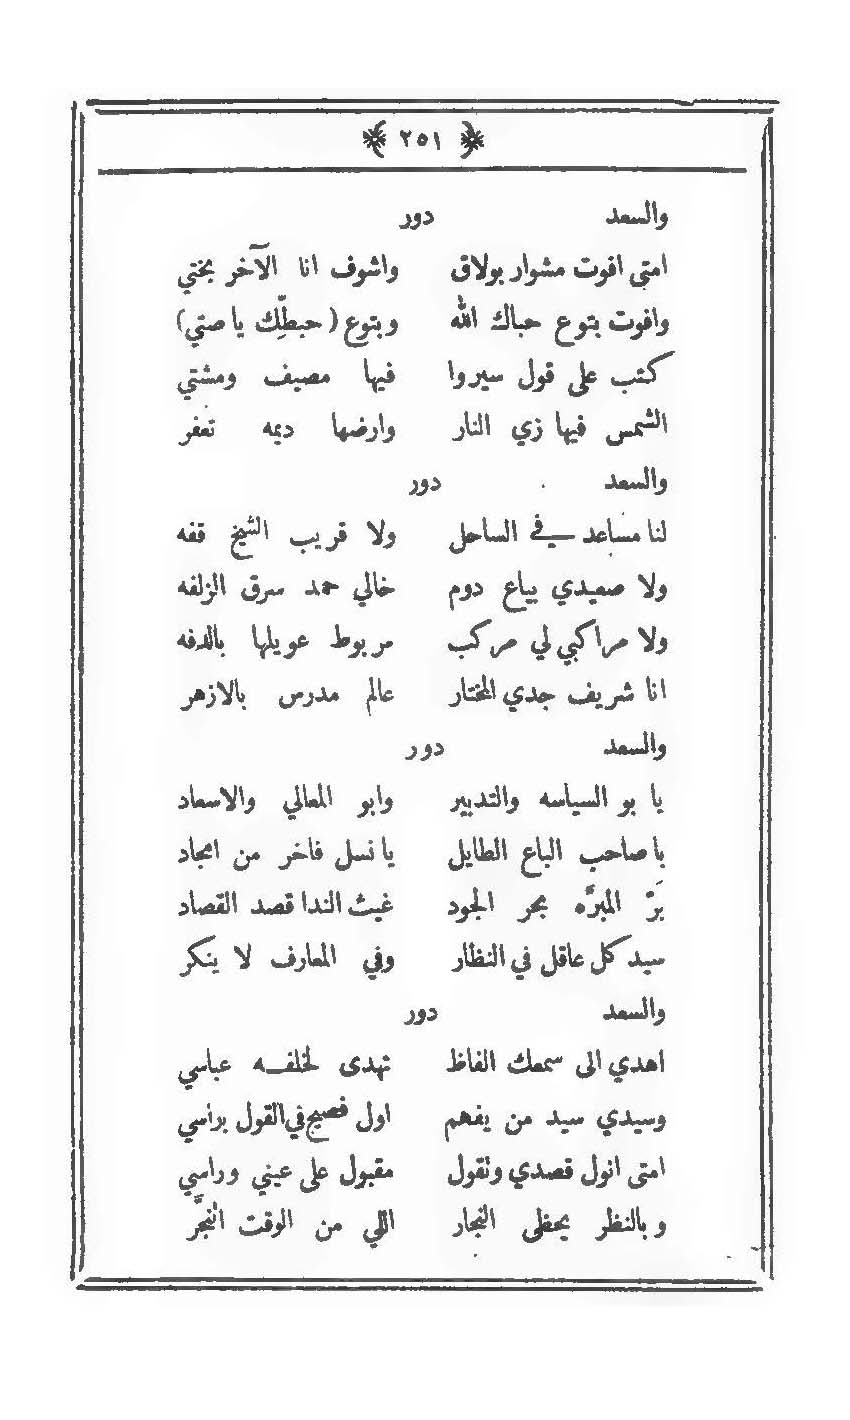 ٢٥١
والسعد دور
امتى افوت مشوار بولاق واشوف انا الآخر بختي
وافوت بتوع حباك الله وبتوع (حبطلّك يا صتي)
كتب على قول سيروا فيها مصيف ومشتي
الشمس فيها زي النار وارضها ديمه تعفر
والسعد دور
لنا مساعد في الساحل ولا قريب الشيخ قفه
ولا صعيدي بياع دوم خالي حمد سرق الزلفه
ولا مراكبي لي مركب مربوط عويلها بالدفه
انا شريف جدي المختار عالم مدرس بالازهر
والسعد دور
يا بو السياسه والتدبير وابو المعالي والاسعاد
يا صاحب الباع الطايل يا نسل فاخر من امجاد
بَرّ المبرَّه بحر الجود غيث الندا قصد القصاد
سيد كل عاقل في النظار وفي المعارف لا ينكر
والسعد دور
اهدي الى سمعك الفاظ تهدى لخلفه عباسي
وسيدي سيد من يفهم اول فصيح في القول براسي
امتى انول قصدي وتقول مقبول على عيني وراسي
وبالنظر يحظى النجار اللي من الوقت اتنجَّر